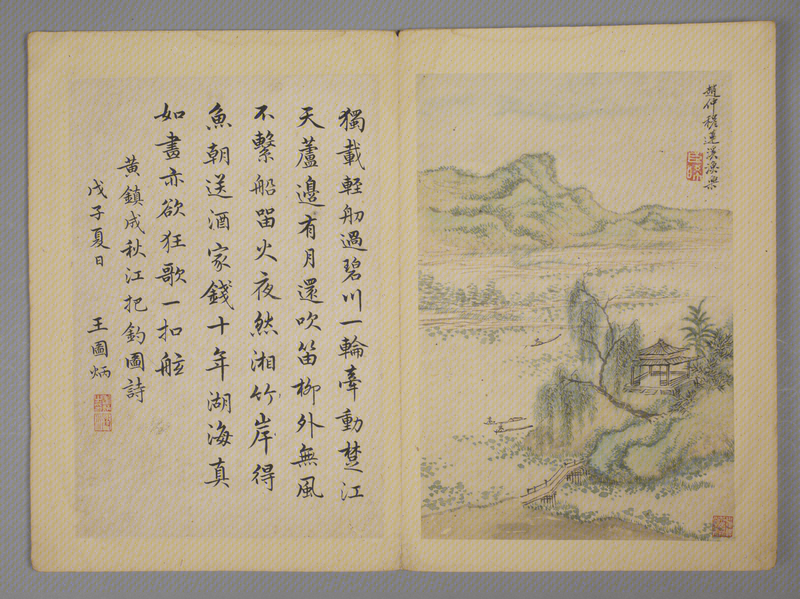 趙仲穆蓮溪漁樂
獨載輕舠過碧川一輪牽動楚江
天蘆邊有月還吹笛柳外無風
不繫船畱火夜然湘竹岸得
魚朝送酒家錢十年湖海真
如畫亦欲狂歌一扣舷
黃鎮成秋江把釣圖詩
戊子夏日 王圖炳